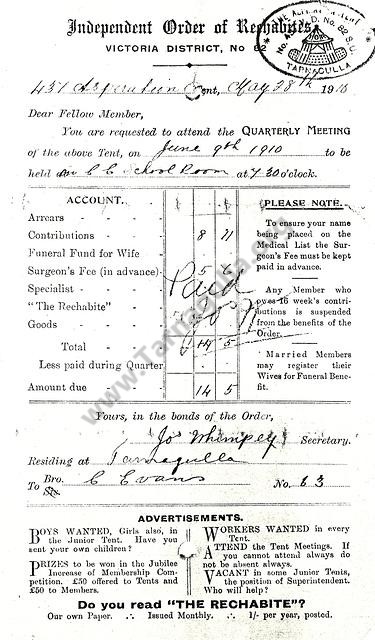 Independent Order of Rechabites,
VICTORIA DISTRICT, No 82
No. D. No. 82 S.U.
TARNAGULLA
451 Asperation Tent, May 28th 1910
Dear Fellow Member,
You are requested to attend the QUARTERLY MEETING
of the above Tent, on June 9th 1910 to be
held C E School Room at 7.30 o'clock.
ACCOUNT.
Arrears - - -
Contributions - - 8 11
Funeral Fund for Wife -
Surgeon's Fee (in advance) 5
Specialist - - -
"The Rechabite" - -
Goods - - -
Total - - 14 5
Less paid during Quarter
Amount due - - 14 5
Paid
PLEASE NOTE.
To ensure your name
being placed on the
Medical List the Sur-
geon's Fee must be kept
paid in advance.
Any Member who
owes 16 week's contri-
butions is suspended
from the benefits of the
Order.
Married Members
may register their
Wives for Funeral Bene-
fit.
Yours, in the bonds of the Order,
Jos Whimpey Secretary.
Residing at Tarnagulla
To Bro. C Evans No. 63
Sis.
ADVERTISEMENTS.
BOYS WANTED, Girls also, in
the Junior Tent. Have you
sent your own children?
PRIZES to be won in the Jubilee
Increase of Membership Com-
petition. £50 offered to Tents and
£50 to Members.
WORKERS WANTED in every
Tent.
ATTEND the Tent Meetings. If
you cannot attend always do
not be absent always.
VACANT in some Junior Tents,
the position of Superintendent.
Who will help?
Do you read "THE RECHABITE"?
Our own Paper. ∴ Issued Monthly. ∴ 1/- per year, posted.
www.Tarnagulla.org